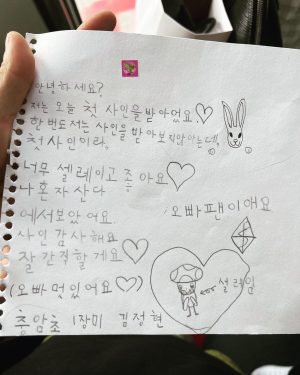 안녕하세요?
저는 오늘 첫 사인을 받아었요♡
한 번도 저는 사인을 받아보지않아는데,
첫사인이라,
너무 셀레이고 조아요♡
ㅎ
나 혼자 산다
에서보았어요.
오빠팬이애요
사인감사해요
잘 간직할게요♡
(오빠멋있어요♡)
설레임
충암초 1장미 김정현